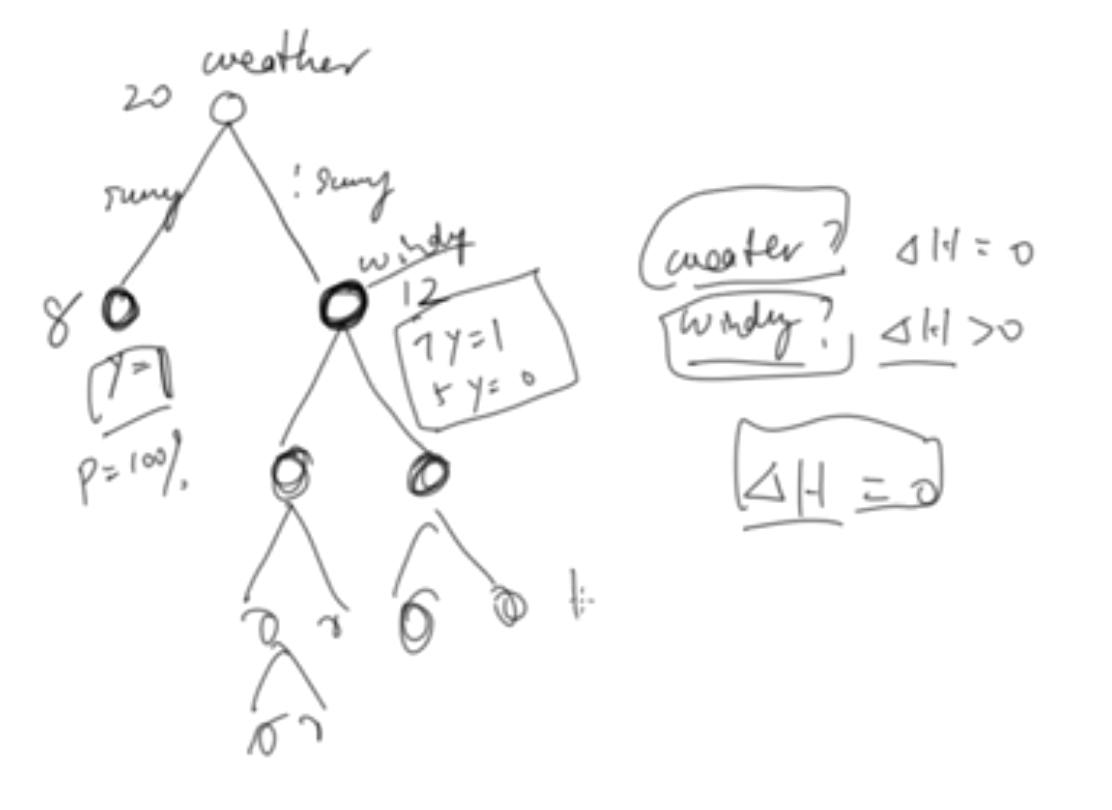 weather
20
sunny
! sunny
windy
8
12
Y=1
7 Y=1
5 Y=0
P=100%
weater? ΔH=0
windy? ΔH>0
ΔH=0